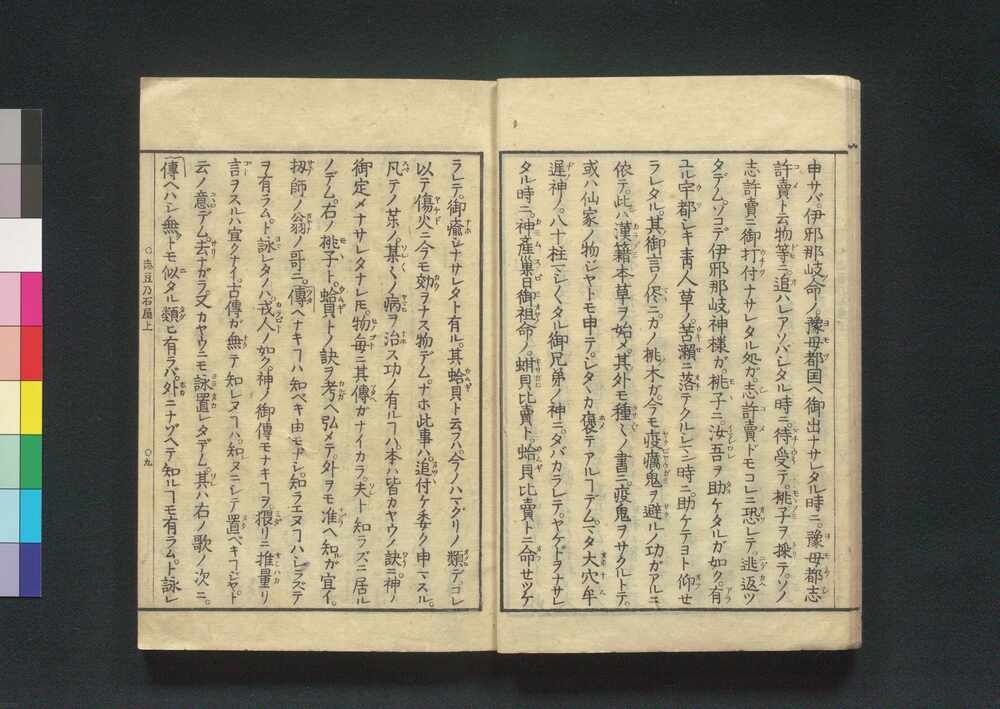 申サバ伊邪那岐命ノ。豫母都国ヘ御出ナサレタル時ニ。豫母都志
許賣ト云物等ニ。追ハレアソバシタル時ニ。待受テ。桃子ヲ採テ。ソノ
志許賣ニ御打付ナサレタル処ガ。志許賣ドモコレニ恐レテ。逃返ツ
タデム。ソコデ伊邪那岐神様ガ。桃子ニ。汝吾ヲ助ケタルガ如ク。有
ユル宇都シキ青人草ノ。苦瀬ニ落テクルシマン時ニ。助ケテヨト仰せ
ラレタル。其御言ノ侭ニ。カノ桃木ガ。今モ疫癘鬼ヲ避ルノ功ガアルニ
依テ。此ハ漢籍本草ヲ始メ。其外モ種々ノ書ニ。疫鬼ヲサクルトテ。
或ハ仙家ノ物ジヤトモ申テ。シタヽカ褒テアルヿデム。マタ大穴牟
遅神ノ。八十柱マシ〱タル御兄弟ノ神ニ。タバカラレテ。ヤケドヲナサレ
タル時ニ。神産巣日御祖命ノ。蚶貝比賣ト。蛤貝比賣トニ命せツケ
ラレテ。御癒シナサレタト有ル。其蛤貝ト云フハ。今ノハマグリノ類デ。コレ
以テ傷火ニ今モ効ヲナス物デム。ナホ此事ハ。追付ケ委ク申マスル。
凡テノ茱ノ。某々ノ病ヲ治ス功ノ有ルヿハ。本ハ皆カヤウノ訣ニ。神ノ
御定メナサレタナレ𪜈。物毎ニ其傳ガナイカラ。夫ト知ラズニ居ル
ノデム。右ノ桃子ト。蛤貝トノ訣ヲ考ヘ弘メテ。外ヲモ准ヘ知ガ宜イ。
扨師ノ翁ノ哥ニ。傳ヘナキヿハ知ベキ由モナシ。知ラエヌヿハシラズテ
ヲ有ラム。ト詠レタノハ。戎人ノ如ク。神ノ御傳モナキヿヲ。猥リニ推量リ
言ヲスルハ宜クナイ。古傳ガ無テ知レヌヿハ。知ヌニシテ置ベキヿジヤト
云ノ意デム。去ナガラ。又カヤウニモ詠置レタデム。其ハ右ノ歌ノ次ニ。
傳ヘハシ無トモ似タル類ヒ有ラバ。外ニナゾヘテ知ルヿモ有ラム。ト詠レ
○志豆乃石屋上
○九